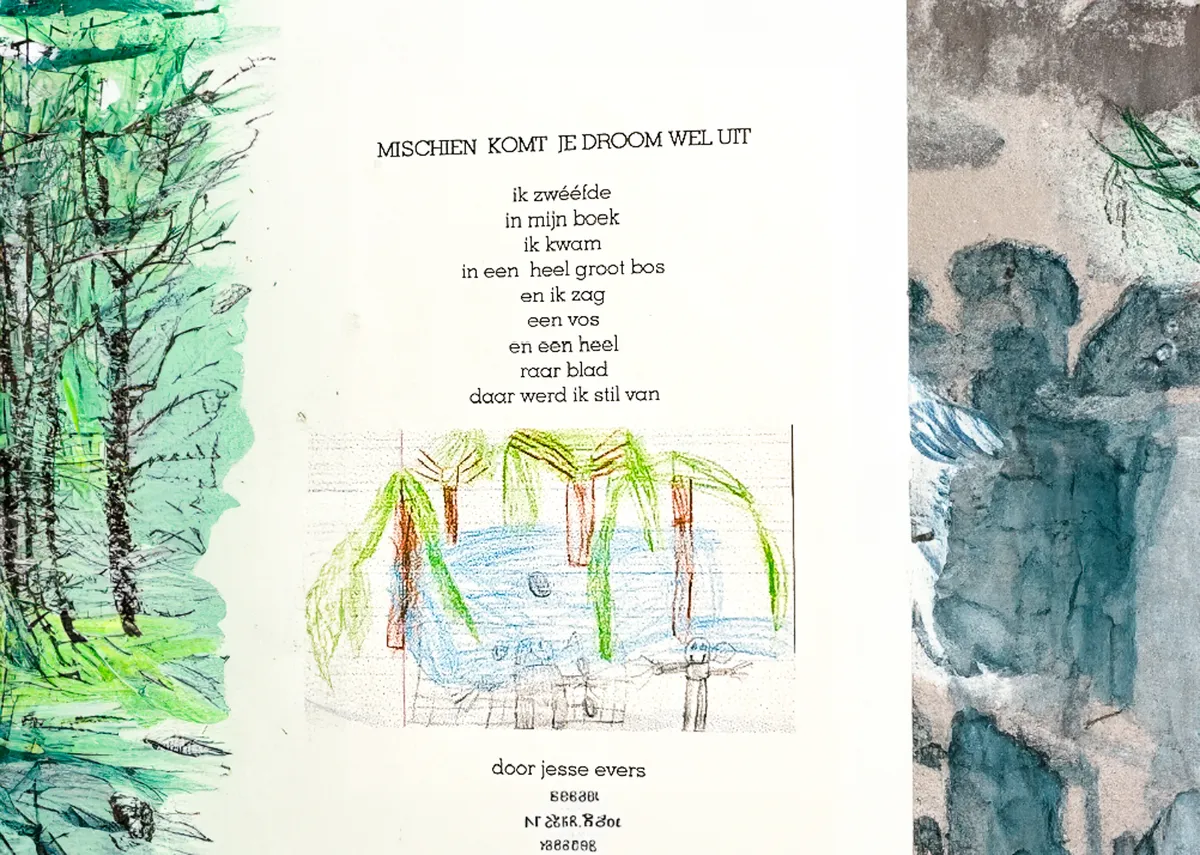 MISCHIEN KOMT JE DROOM WEL UIT
ik zwééfde
in mijn boek
ik kwam
in een heel groot bos
en ik zag
een vos
en een heel
raar blad
daar werd ik stil van
door jesse evers